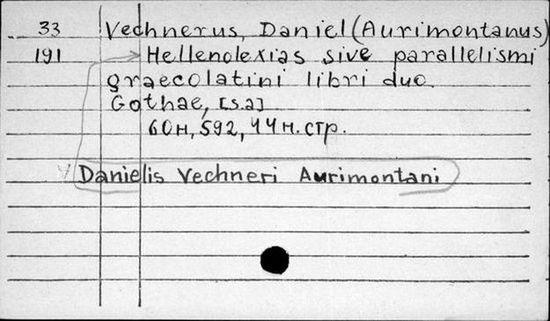 33 Vechnerus, Daniel (Aurimontanus)
191 Hellenolexias sive parallelismi
graecolatini libri duo.
Gothae, [s.a]
60н, 592, 44 н. стр.
Danielis Vechneri Aurimontani